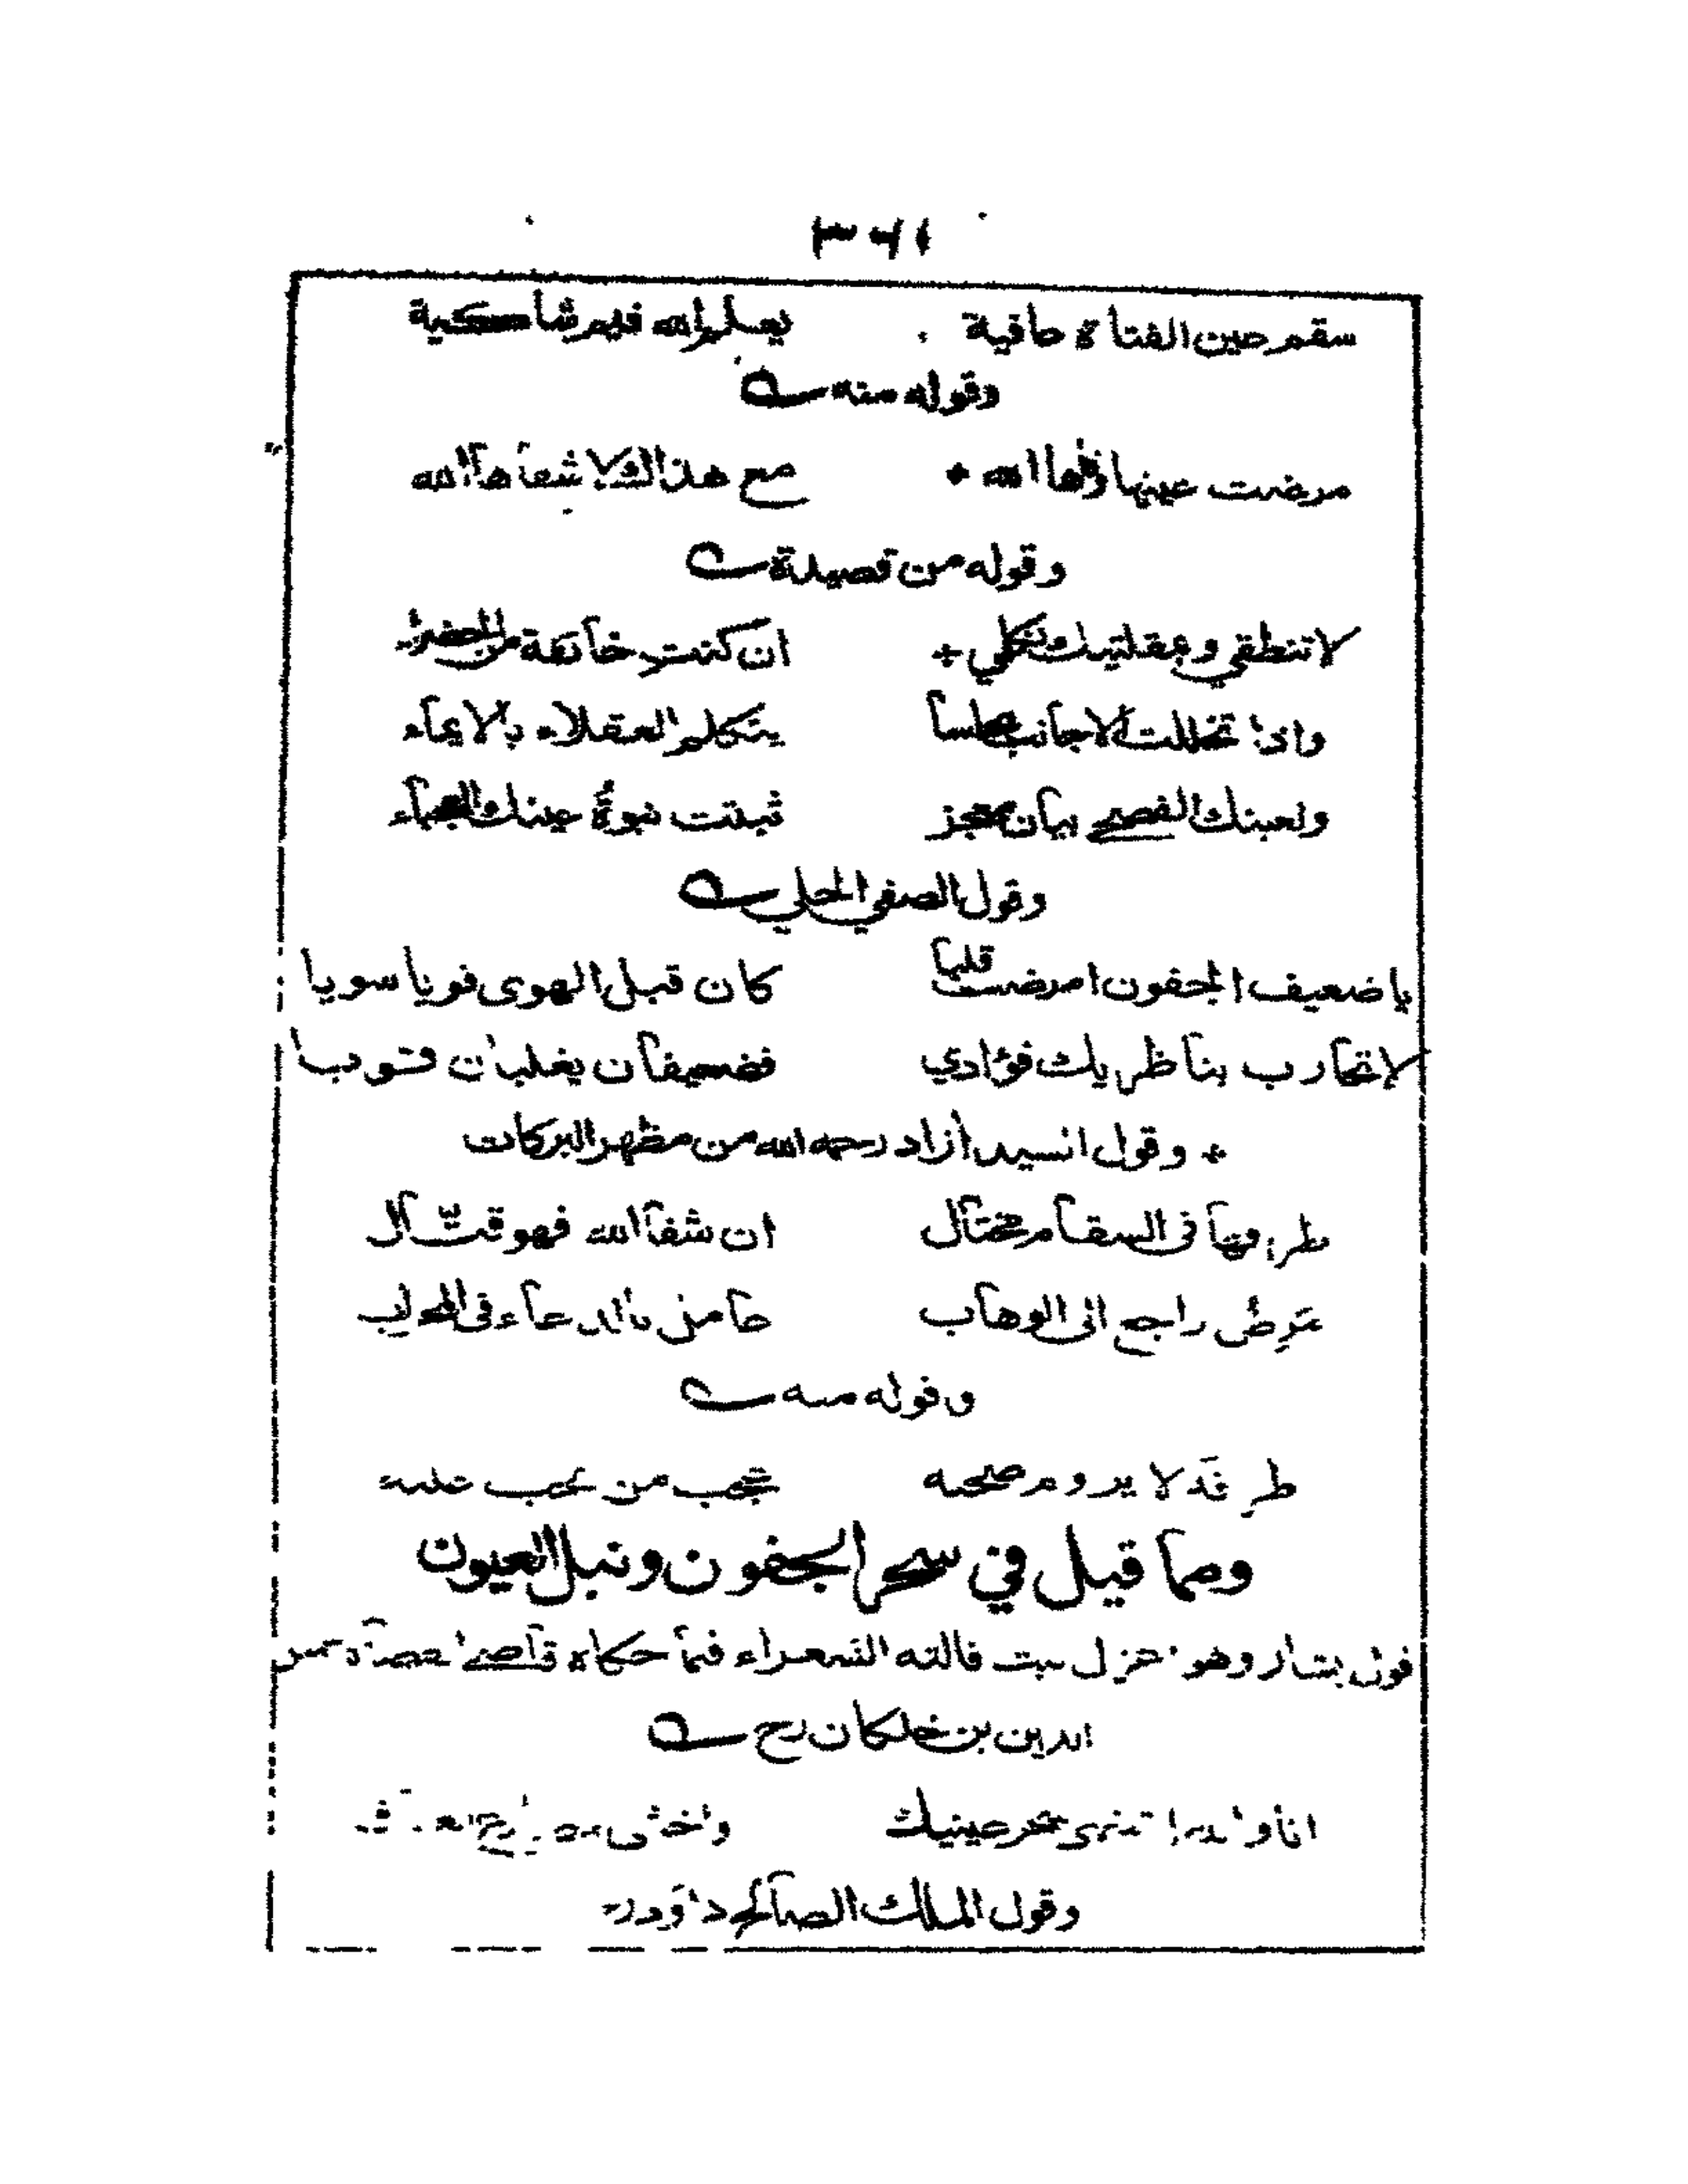 ٣٦١
سقم عين الفتاة عافية يعلم الله فيم شاكية
وقوله منه
مرضت عينها وقاها الله * مع هذا الشكا شفاها الله
وقوله من قصيدة
لا تنطقي وبمقلتيك تكلمي * ان كنت خائفة من الحضراء
واذا تخللت الاجانب مجلسا يتكلم العقلاء بالايماء
ولعينك الفصحى بيان معجز ثبتت نبوة عينك النجلاء
وقول الصفي الحلي
يا ضعيف الجفون امرضت قلبا كان قبل الهوى قويا سويا
لا تحارب بناظريك فؤادي فضعيفان يغلبان قويا
* وقول السيد آزاد رحمه الله من مظهر البركات
طرفها في السقام محتال ان شفاه الله فهو قتّال
راجع الى الوهاب بالدعاء في
وقوله منه
طرفه لا يروم صحته عجب من
ومما قيل في سحر الجفون ونبل العيون
قول بشار وهو اغزل بيت قالته الشعراء فيما حكاه قاضي القضاة شمس
الدين بن خلكان رح
انا والله اشتهي سحر عينيك واخشى مصارع العشاق
وقول الملك الصالح داود